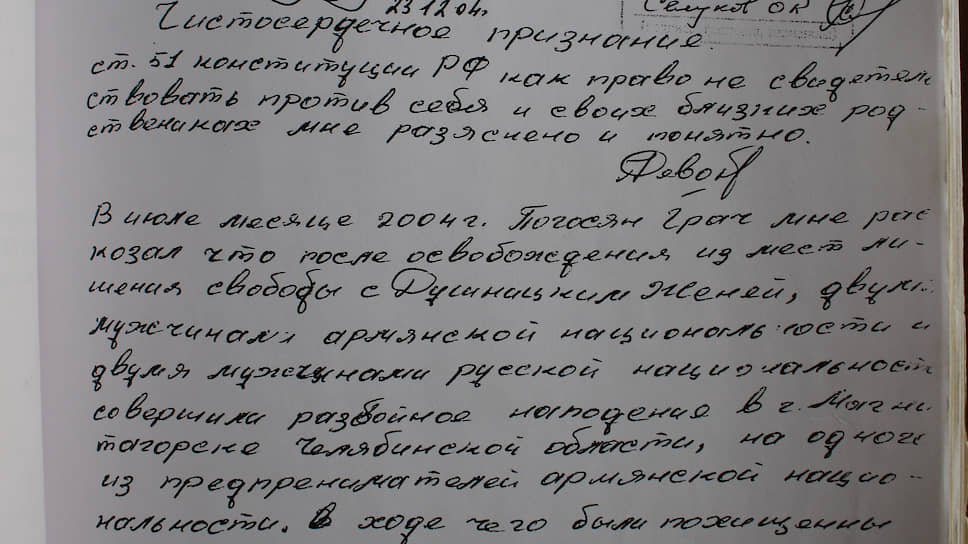 23.12.04г.
Чистосердечное признание.
ст. 51 конституции РФ как право не свидетель
ствовать против себя и своих близких род-
ствениках мне разяснено и понятно.
В июле месяце 2004г. Погосян Грач мне рас
козал что после освобождения из мест ли-
шения свободы с Душницким Женей, двумя
мужчинами армянской национальности и
двумя мужчинами русской национальност
совершили разбойное нападение в г. Магни
тогорске Челябинской области, на одного
из предпренимателей армянской нацио-
нальности. В ходе чего были похищенны